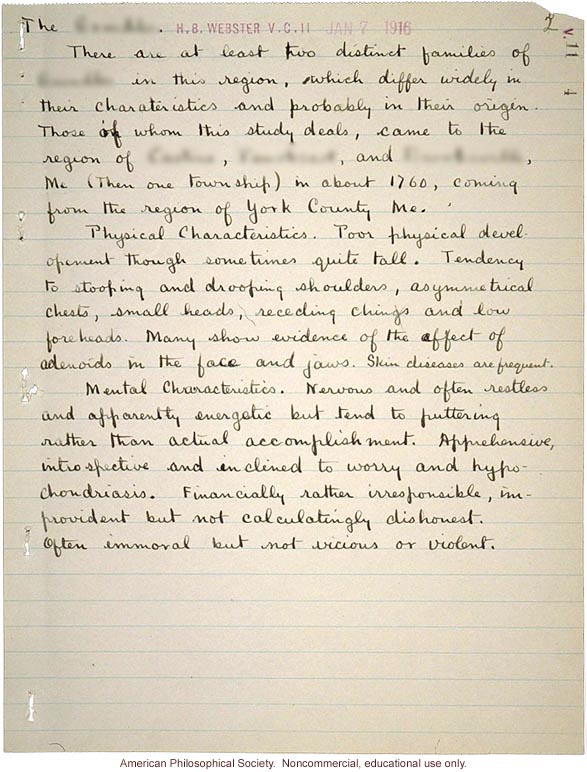 The . H.B. WEBSTER V.C.11 JAN 7 1916 2
V
11
4
There are at least two distinct families of
in this region, which differ widely in
their charateristics and probably in their origin.
Those of whom this study deals, came to the
region of , , and ,
Me (then one township) in about 1760, coming
from the region of York County Me.
Physical Characteristics. Poor physical devel-
opement though sometimes quite tall. Tendency
to stooping and drooping shoulders, asymmetrical
chests, small heads, receding chings and low
foreheads. Many show evidence of the effect of
adenoids in the face and jaws. Skin diseases are frequent.
Mental Characteristics. Nervous and often restless
and apparently energetic but tend to puttering
rather than actual accomplishment. Apprehensive,
introspective and inclined to worry and hypo-
chondriasis. Financially rather irresponsible, im-
provident but not calculatingly dishonest.
Often immoral but not vicious or violent.
American Philosophical Society. Noncommercial, educational use only.